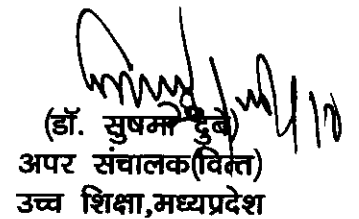 (डॉ. सुषमा दुबे)
अपर संचालक(वित्त)
उच्च शिक्षा,मध्यप्रदेश